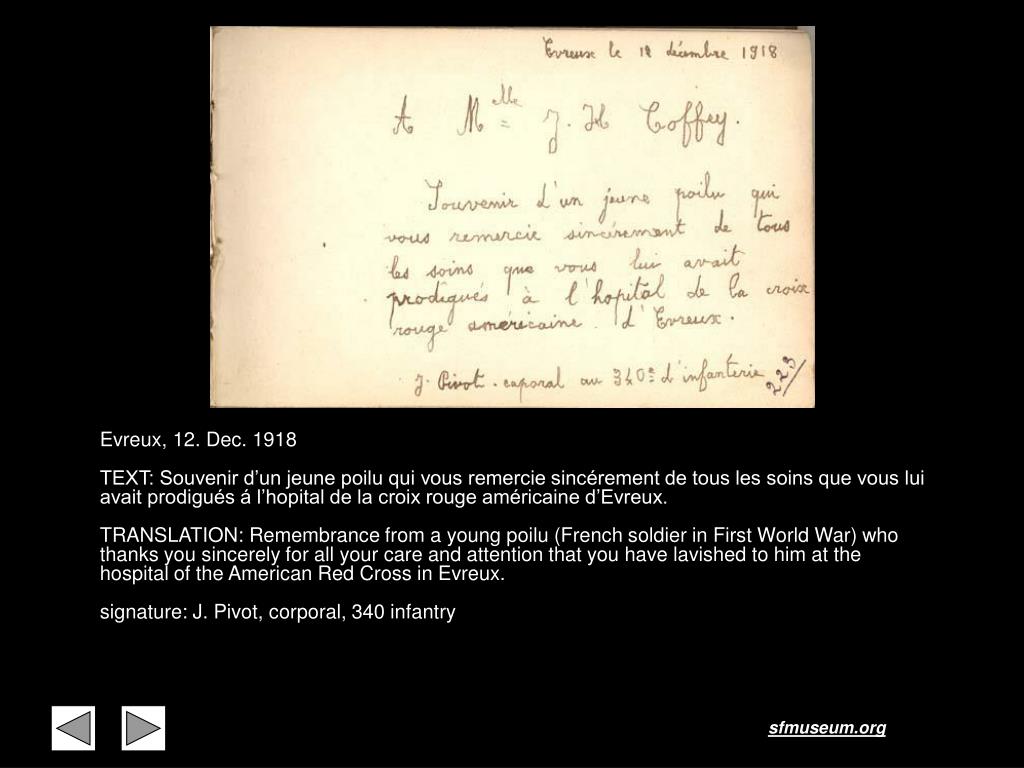 Evreux le 12 décembre 1918
A Mlle J. H Coffey.
Souvenir d'un jeune poilu qui
vous remercie sincérement de tous
les soins que vous lui avait
prodigués à l'hopital de la croix
rouge américaine. d'Evreux.
J. Pivot. caporal au 340e d'infanterie
223
Evreux, 12. Dec. 1918
TEXT: Souvenir d’un jeune poilu qui vous remercie sincérement de tous les soins que vous lui
avait prodigués á l’hopital de la croix rouge américaine d’Evreux.
TRANSLATION: Remembrance from a young poilu (French soldier in First World War) who
thanks you sincerely for all your care and attention that you have lavished to him at the
hospital of the American Red Cross in Evreux.
signature: J. Pivot, corporal, 340 infantry
sfmuseum.org